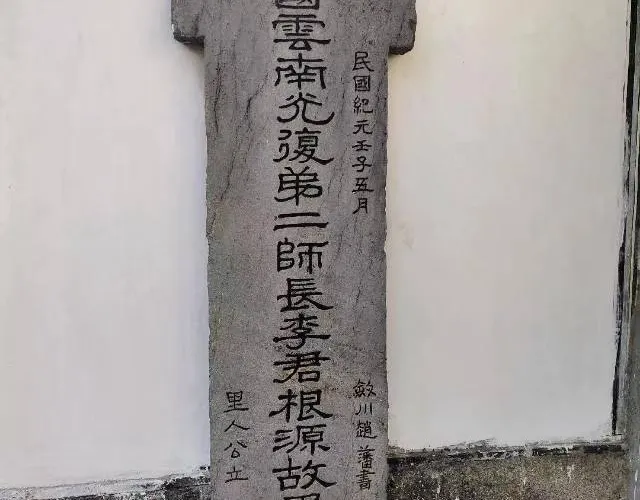 民國紀元壬子五月
劍川趙藩書
國雲南光復第二師長李君根源故里
里人公立